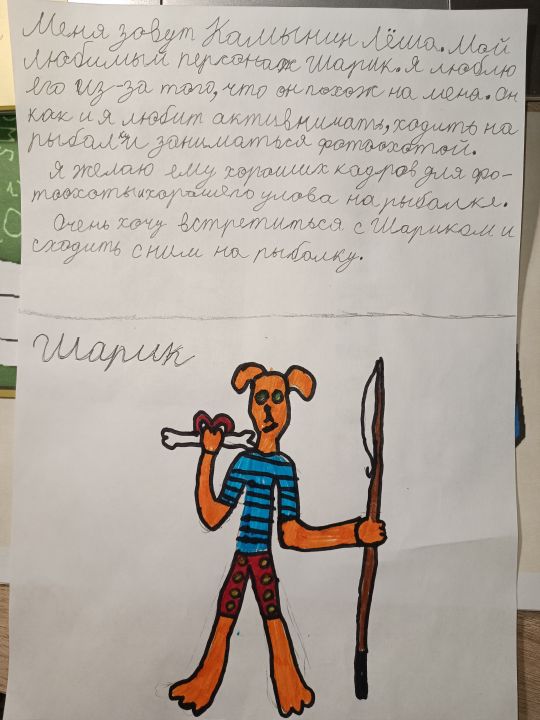 Меня зовут Камынин Лёша. Мой
любимый персонаж Шарик. Я люблю
его из-за того, что он похож на меня. Он
как и я любит активнимать, ходить на
рыбалки заниматься фотоохотой.
Я желаю ему хороших кадров для фо-
тоохоты и хорошего улова на рыбалке.
Очень хочу встретиться с Шариком и
сходить с ним на рыбалку.
Шарик